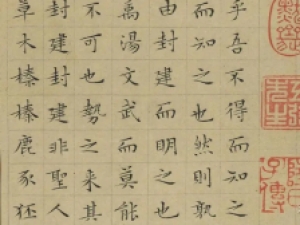 乎吾不得而知之
而知之也然則孰
由封建而明之也
禹湯文武而莫能
不可也勢之來其
封建封建非聖人
草木榛榛鹿豕狉